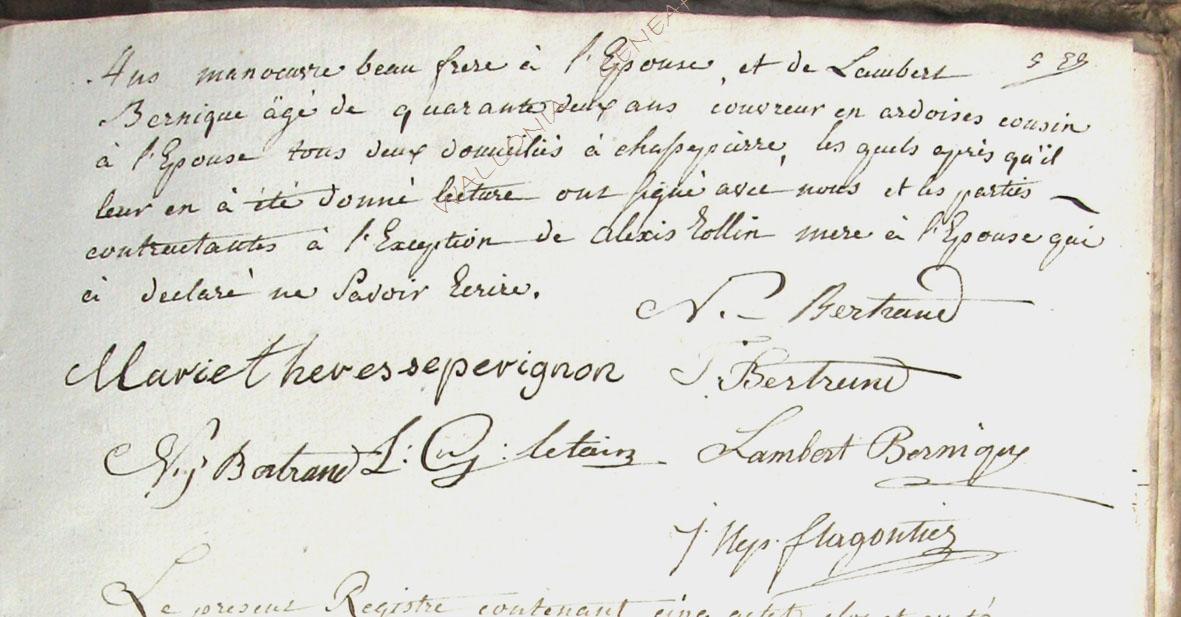 Ans manoeuvre beau frere à l'Epouse, et de Lambert
Bernique âgé de quarante deux ans couvreur en ardoises cousin
à l'Epouse tous deux domiciliés à chassepierre, les quels après qu'il
leur en à été donné lecture ont signé avec nous et les parties
contractantes à l'Exception de alexis Rollin mere à l'Epouse qui
à declaré ne Savoir Ecrire.
N. Bertrand
Marie theressepevignon J. Bertrand
Bertrand L: letain Lambert Bernique
J. Nep. flagontier
Le present Registre contenant cinq actes clos et